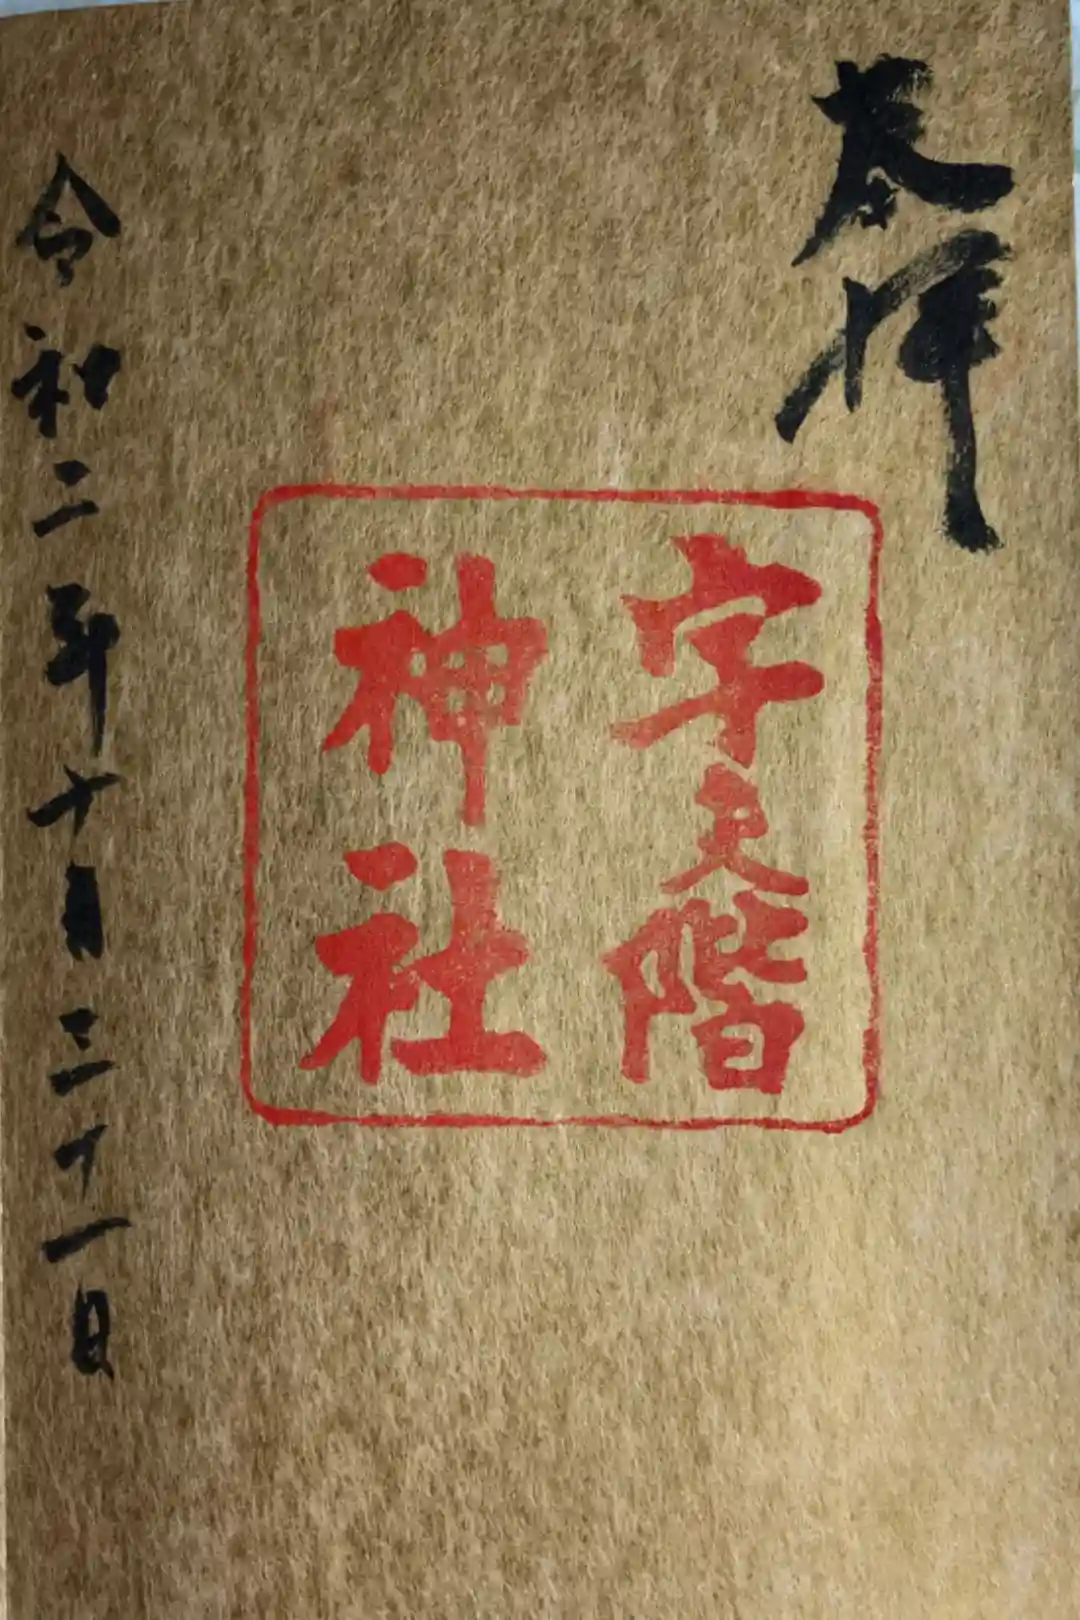 奉拝
宇夫階
神社
令和二年十月三十一日